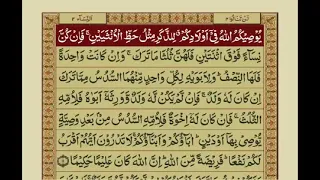 لن تنالوا ۴
النسآء ۴
یُوْصِیْكُمُ اللّٰهُ فِیْۤ اَوْلَادِكُمْ ۗ لِلذَّكَرِ مِثْلُ حَظِّ الْاُنْثَیَیْنِ ۚ فَاِنْ كُنَّ
نِسَآءً فَوْقَ اثْنَتَیْنِ فَلَهُنَّ ثُلُثَا مَا تَرَكَ ۚ وَ اِنْ كَانَتْ وَاحِدَةً
فَلَهَا النِّصْفُ ؕ وَ لِاَبَوَیْهِ لِكُلِّ وَاحِدٍ مِّنْهُمَا السُّدُسُ مِمَّا تَرَكَ
اِنْ كَانَ لَهٗ وَلَدٌ ۚ فَاِنْ لَّمْ یَكُنْ لَّهٗ وَلَدٌ وَّ وَرِثَهٗۤ اَبَوٰهُ فَلِاُمِّهِ
الثُّلُثُ ۚ فَاِنْ كَانَ لَهٗۤ اِخْوَةٌ فَلِاُمِّهِ السُّدُسُ مِنْۢ بَعْدِ وَصِیَّةٍ
یُّوْصِیْ بِهَاۤ اَوْ دَیْنٍ ؕ اٰبَآؤُكُمْ وَ اَبْنَآؤُكُمْ لَا تَدْرُوْنَ اَیُّهُمْ اَقْرَبُ
لَكُمْ نَفْعًا ؕ فَرِیْضَةً مِّنَ اللّٰهِ ؕ اِنَّ اللّٰهَ كَانَ عَلِیْمًا حَكِیْمًا